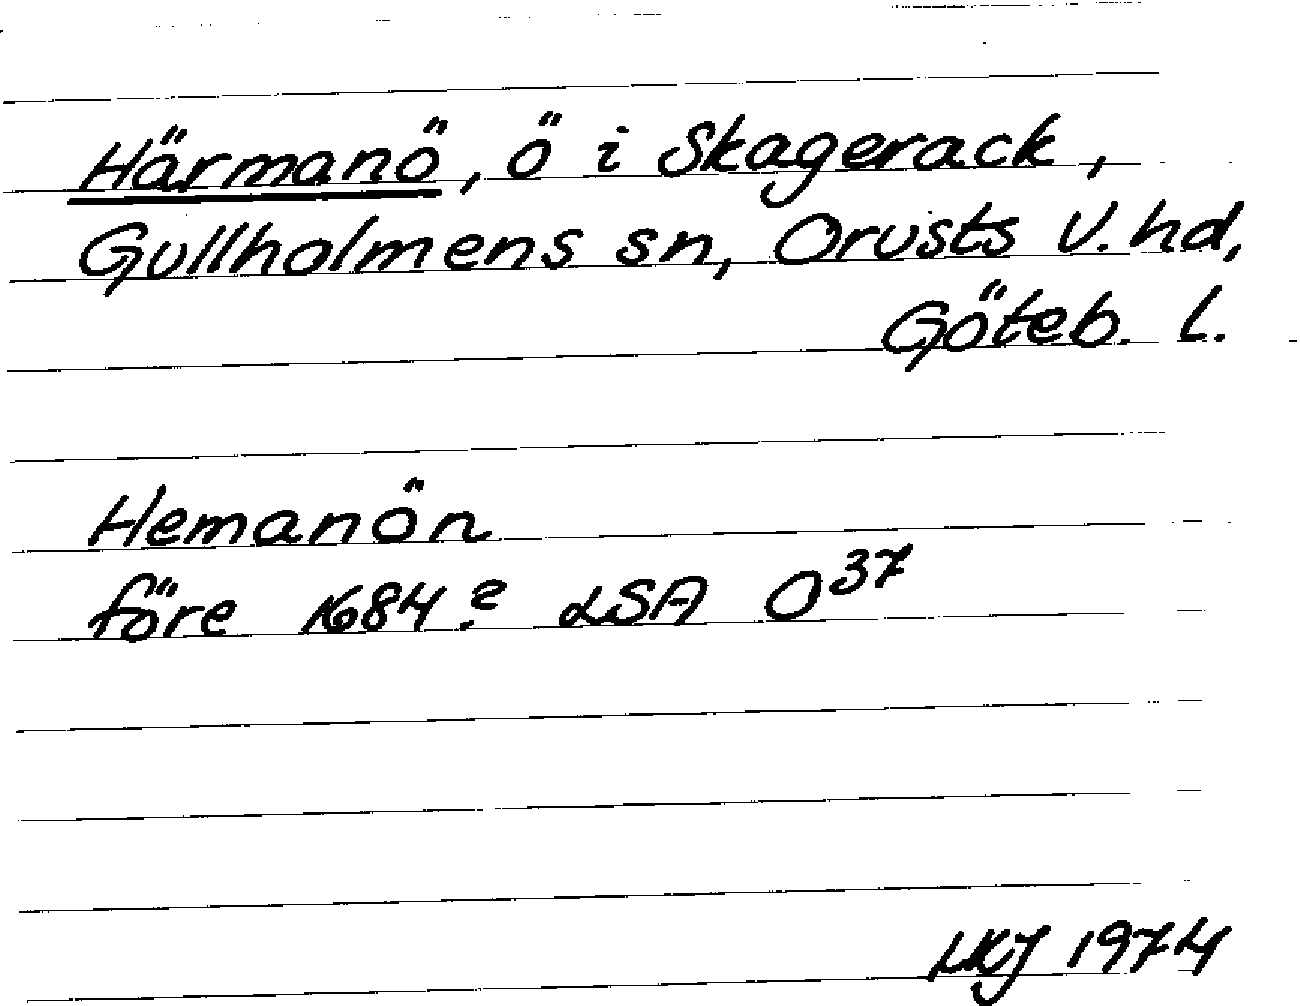 Härmanö, ö i Skagerack,
Gullholmens sn, Orusts V. hd,
Göteb. l.
Hemanön
före 1684? LSA O³⁷
LKJ 1974